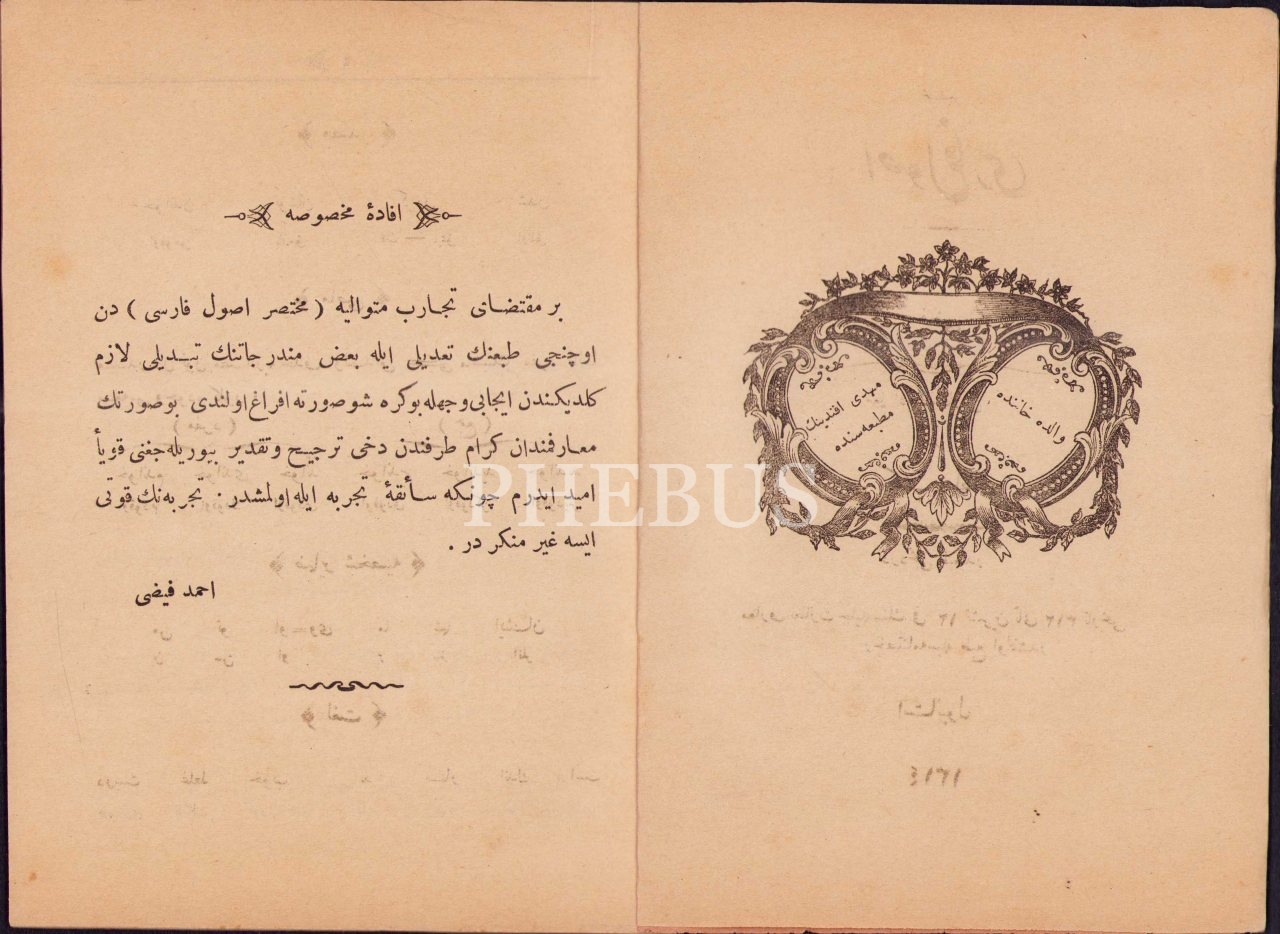 والده خاننده
مهدی افندینك
مطبعه سنده
افادهٔ مخصوصه
بر مقتضای تجارب متوالیه ( مختصر اصول فارسی ) دن
اوچنجی طبعنك تعدیلی ایله بعض مندرجاتنك تبدیلی لازم
كلدیكندن ایجابی وجهله بوكره شوصورته افراغ اولندی بوصورتك
معارفمندان كرام طرفندن دخی ترجیح و تقدیر بیوریله جغنی قویاً
امید ایدرم چونكه سائقهٔ تجربه ایله اولمشدر . تجربه نك قوتی
ایسه غیر منكر در .
احمد فیضی
PHEBUS